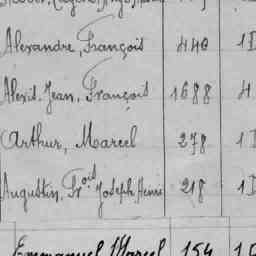 Alexandre, François 440 1D
Alexis, Jean, François 1688 4
Arthur, Marcel 278 1D
Augustin, Frois Joseph, Henri 218 1D
Emmanuel, Marcel 154